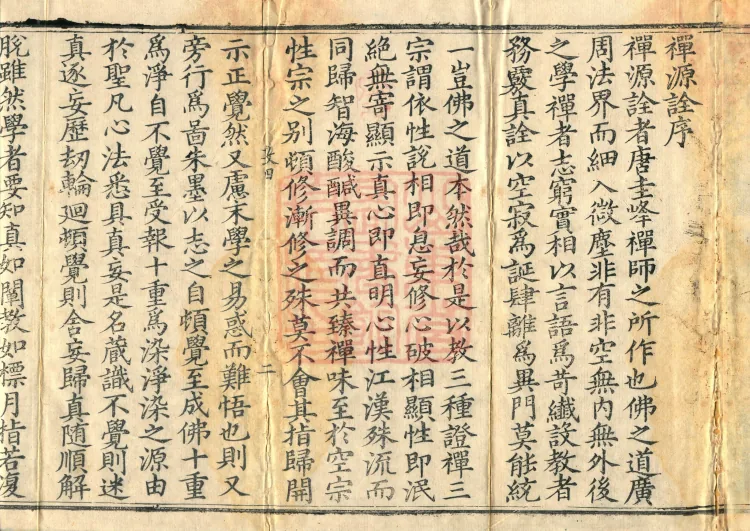 禪源詮序
禪源詮者唐圭峰禪師之所作也佛之道廣
周法界而細入微塵非有非空無內無外後
之學禪者志窮實相以言語爲苛纖設教者
務竅真詮以空寂爲誕肆離爲異門莫能統
一豈佛之道本然哉於是以教三種證禪三
宗謂依性說相即息妄修心破相顯性即泯
絕無寄顯示真心即真明心性江漢殊流而
同歸智海酸醎異調而共臻禪味至於空宗
性宗之別頓修漸修之殊莫不會其指歸開
二
示正覺然又慮末學之易惑而難悟也則又
旁行爲啚朱墨以志之自頓覺至成佛十重
爲淨自不覺至受報十重爲染淨染之源由
於聖凡心法悉具真妄是名藏識不覺則迷
真逐妄歷劫輪迴頓覺則舍妄歸真隨順解
脫雖然學者要知真如闡教如標月指若復